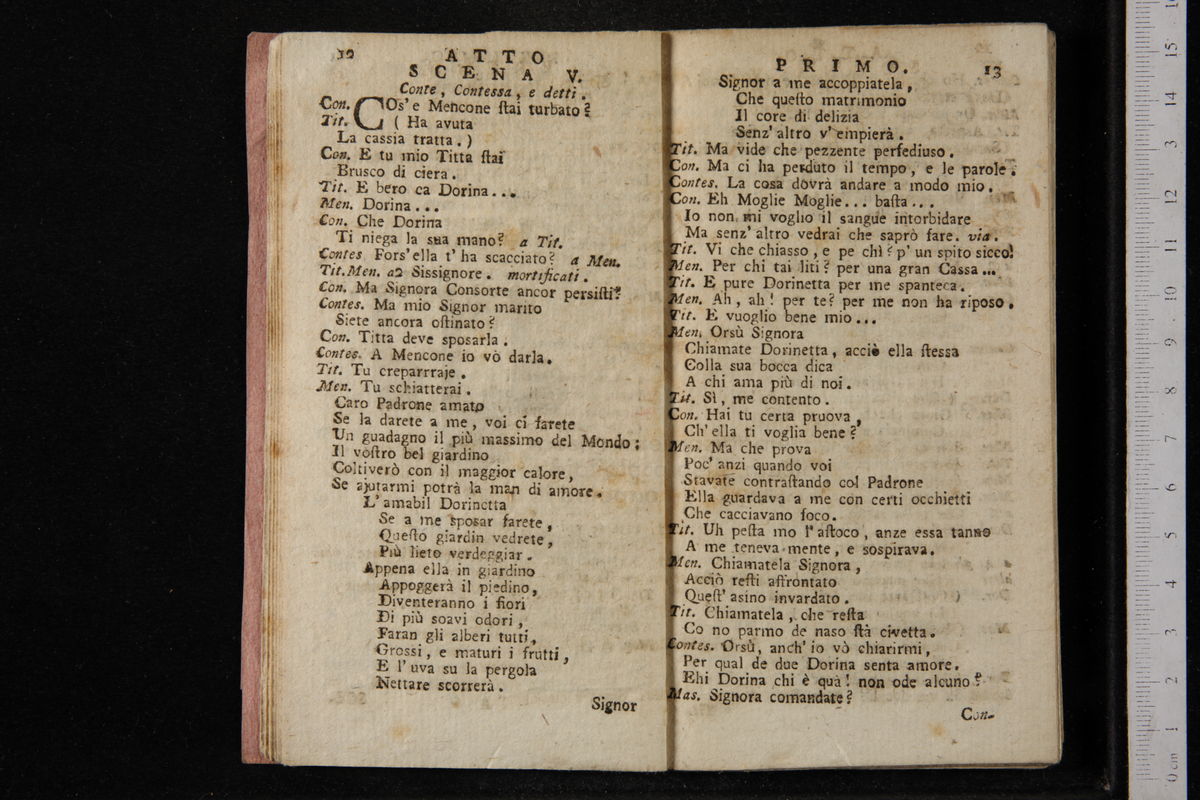 12
ATTO
SCENA V.
Conte, Contessa, e detti.
Con. COs' e Mencone ſtai turbato?
Tit. ( Ha avuta
La cassia tratta. )
Con. E tu mio Titta ſtai
Brusco di ciera.
Tit. E bero ca Dorina...
Men. Dorina...
Con. Che Dorina
Ti niega la sua mano? a Tit.
Contes Fors' ella t' ha scacciato? a Men.
Tit. Men. a2 Sissignore. mortificati.
Con. Ma Signora Consorte ancor persiſti?
Contes. Ma mio Signor marito
Siete ancora oſtinato?
Con. Titta deve sposarla.
Contes. A Mencone io vò darla.
Tit. Tu creparrraje.
Men. Tu schiatterai.
Caro Padrone amato
Se la darete a me, voi ci farete
Un guadagno il più massimo del Mondo:
Il voſtro bel giardino
Coltiverò con il maggior calore,
Se ajutarmi potrà la man di amore.
L' amabil Dorinetta
Se a me sposar farete,
Queſto giardin vedrete,
Più lieto verdeggiar.
Appena ella in giardino
Appoggerà il piedino,
Diventeranno i fiori
Di più soavi odori,
Faran gli alberi tutti,
Grossi, e maturi i frutti,
E l' uva su la pergola
Nettare scorrerà.
Signor
PRIMO. 13
Signor a me accoppiatela,
Che queſto matrimonio
Il core di delizia
Senz' altro v' empierà.
Tit. Ma vide che pezzente perfediuso.
Con. Ma ci ha perduto il tempo, e le parole.
Contes. La cosa dovrà andare a modo mio.
Con. Eh Moglie Moglie... baſta...
Io non mi voglio il sangue intorbidare
Ma senz' altro vedrai che saprò fare. via.
Tit. Vi che chiasso, e pe chì? p' un spito sicco!
Men. Per chi tai liti? per una gran Cassa...
Tit. E pure Dorinetta per me spanteca.
Men. Ah, ah! per te? per me non ha riposo.
Tit. E vuoglio bene mio...
Men. Orsù Signora
Chiamate Dorinetta, acciò ella ſtessa
Colla sua bocca dica
A chi ama più di noi.
Tit. Sì, me contento.
Con. Hai tu certa pruova,
Ch' ella ti voglia bene?
Men. Ma che prova
Poc' anzi quando voi
Stavate contraſtando col Padrone
Ella guardava a me con certi occhietti
Che cacciavano foco.
Tit. Uh peſta mo l' aſtoco, anze essa tanno
A me teneva mente, e sospirava.
Men. Chiamatela Signora,
Acciò reſti affrontato
Queſt' asino invardato.
Tit. Chiamatela, che reſta
Co no parmo de naso ſtà civetta.
Contes. Orsù, anch' io vò chiarirmi,
Per qual de due Dorina senta amore.
Ehi Dorina chi è quà! non ode alcuno?
Mas. Signora comandate?
Con-
0 cm 1 2 3 4 5 6 7 8 9 10 11 12 13 14 15 16